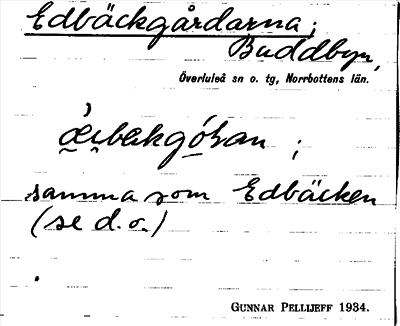 Edbäckgårdarna;
Buddbyn,
Överluleå sn o. tg, Norrbottens län.
samma som Edbäcken
(se d.o.)
GUNNAR PELLIJEFF 1934.